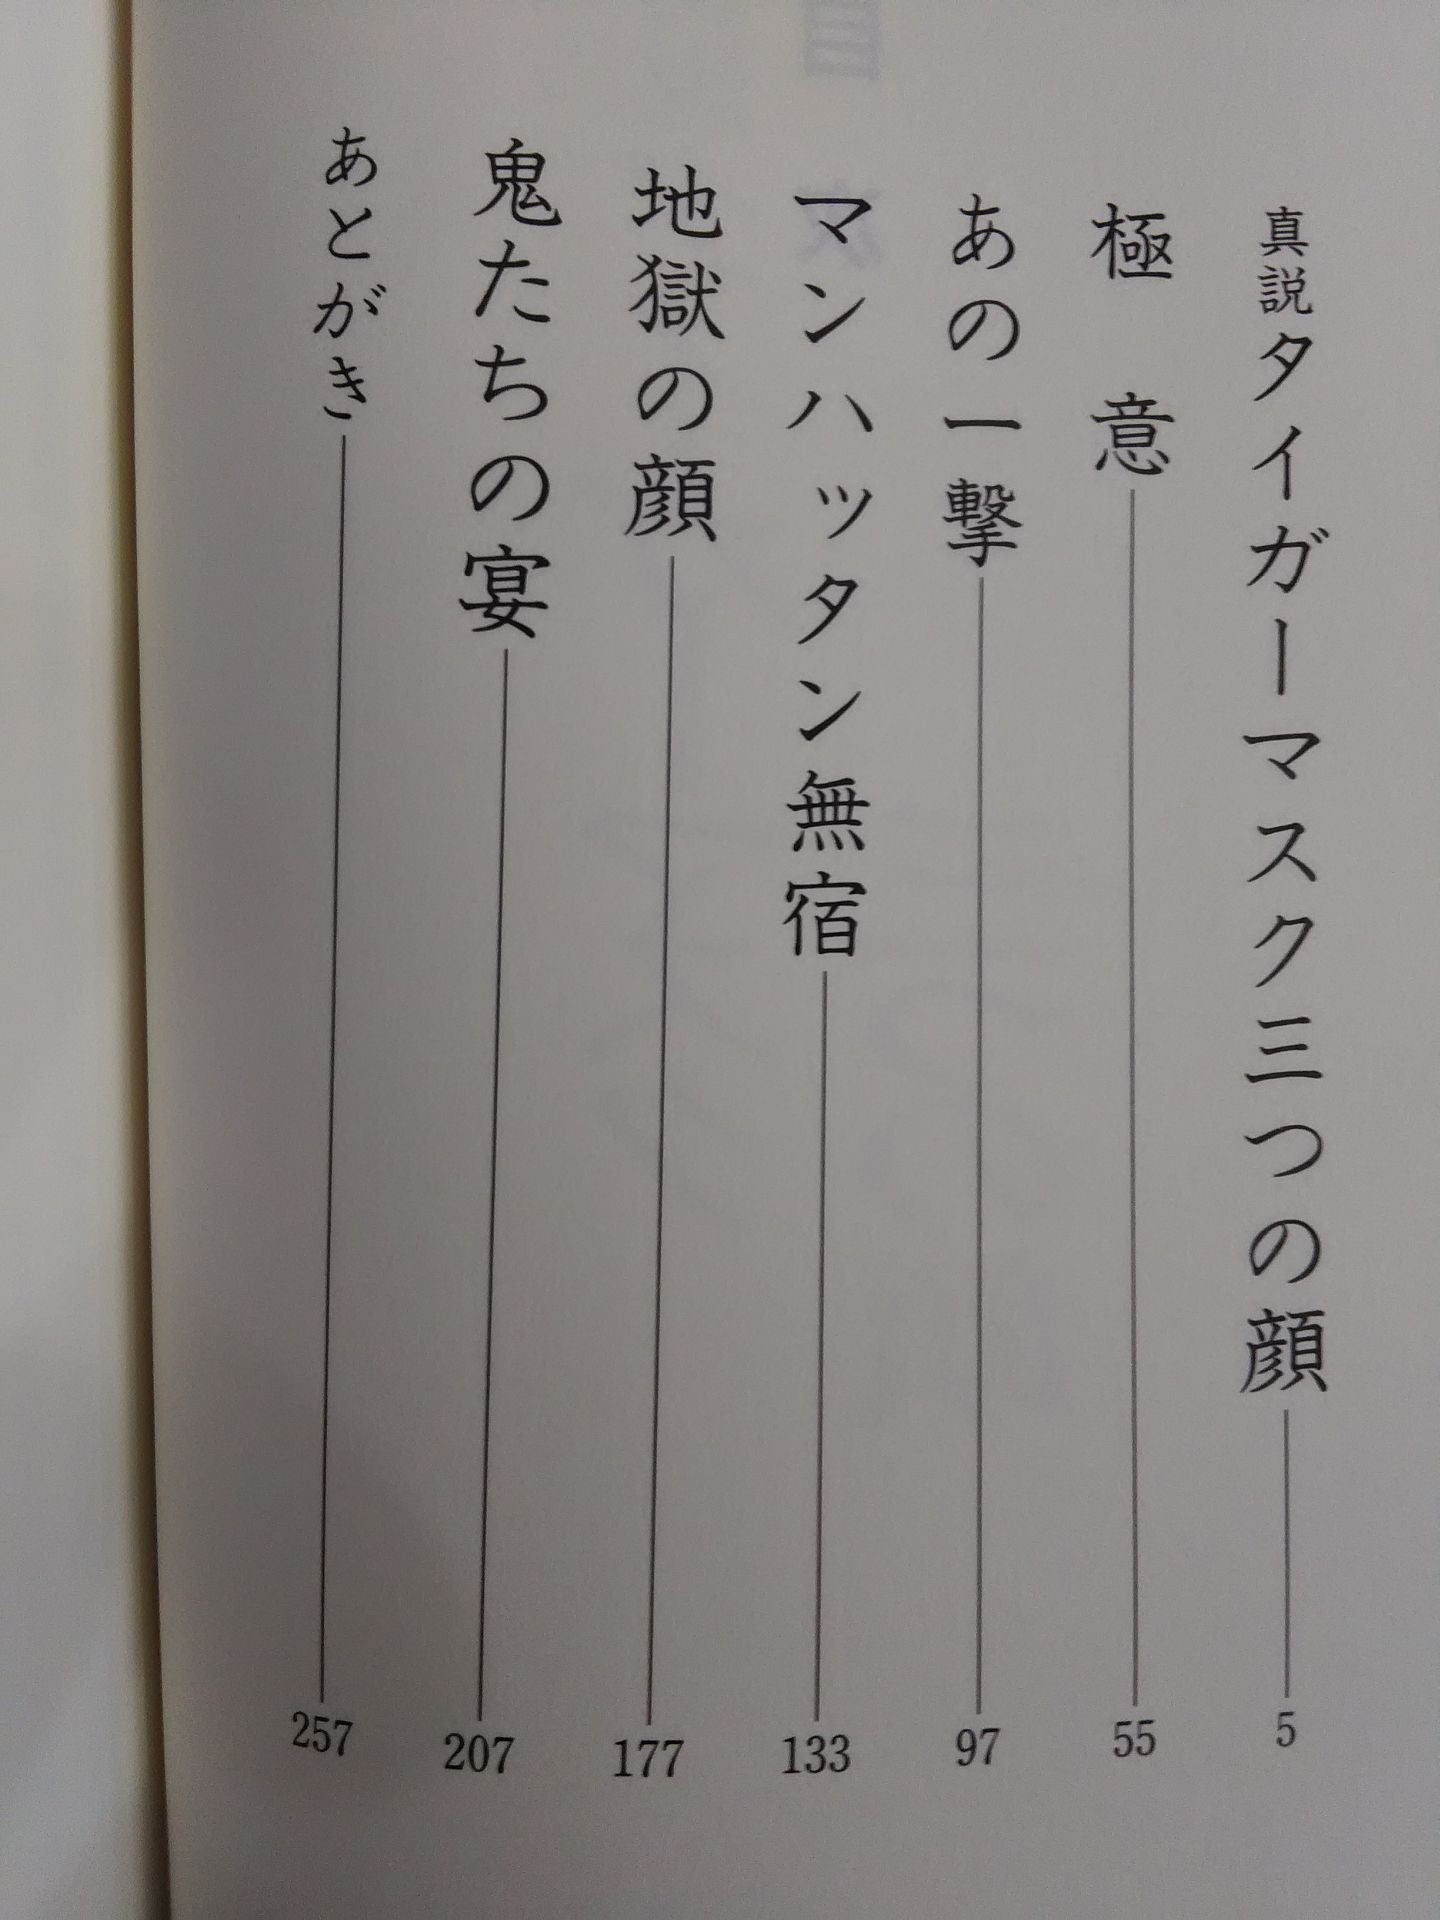 真説タイガーマスク三つの顔 5
極 意 55
あの一撃 97
マンハッタン無宿 133
地獄の顔 177
鬼たちの宴 207
あとがき 257